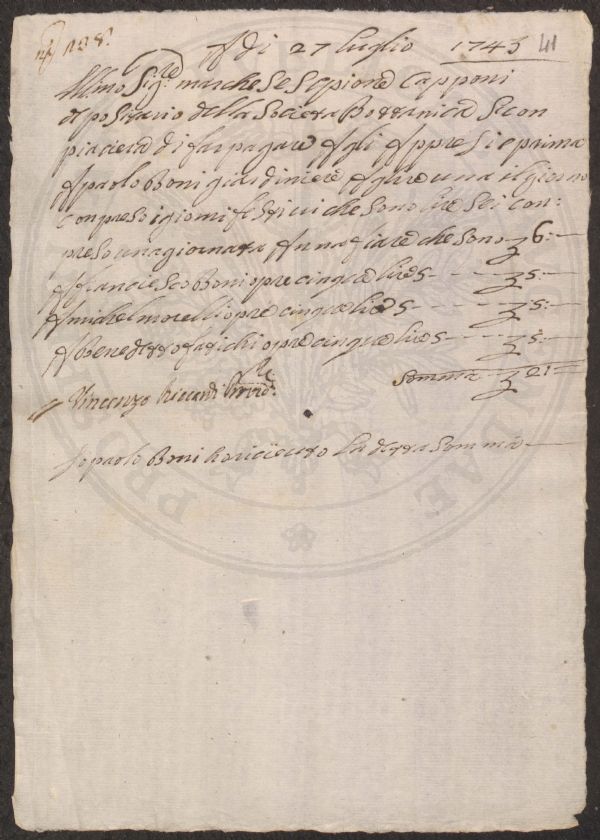 n° 108.
A di 27 luglio 1743 41
Illmo Sigre marchese Scipione Capponi
depositario della Società Bottanica Si con
piacerà di far pagare Agli Appresi e prima
A paolo Boni giardiniere A lire una il giorno
Conpresoi giorni festivi che sono lire Sei con:
preso una giornata Annafiare che sono £ 6:—
A francesco Boni opre cinque lire 5 — £ 5:—
A michel morelli opre cinque lire 5 — £ 5:—
A Benedetto fatichi opre cinque lire 5 — £ 5:—
Vincenzo Riccardi Provre. Somma £ 21:
Io paolo Boni ho riceuto La detta Somma —